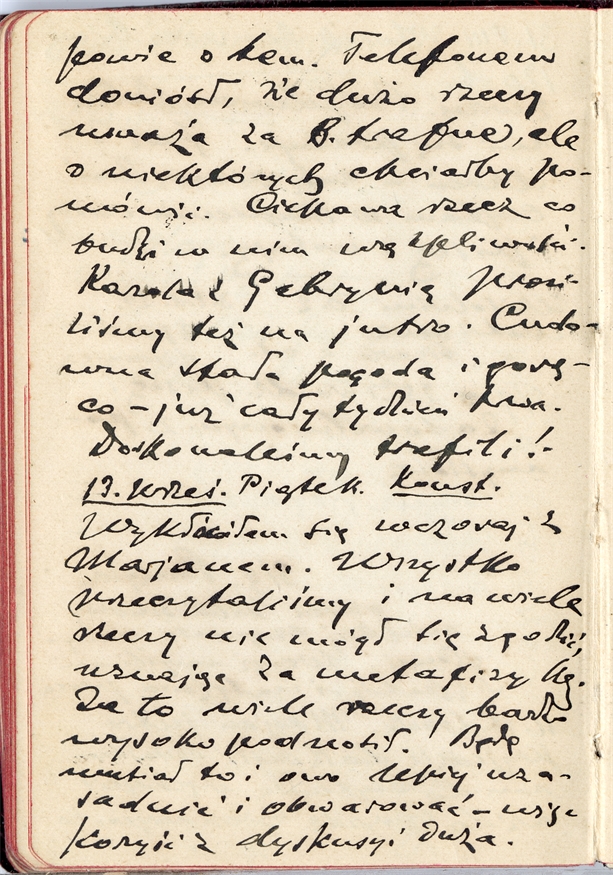 powie o tem. Telefonem
doniósł, że dużo rzeczy
uważa za B. trafne, ale
o niektórych chciałby po-
mówić. Ciekawa rzecz co
budzi w nim wątpliwość.
Karola z Gabrynią prosi-
liśmy też na jutro. Cudo-
wna stała pogoda i gorą-
co – już cały tydzień trwa.
Doskonaleśmy trafili!
13. wrześ. Piątek. Konst.
Wykłóciłem się wczoraj z
Marjanem. Wszystko
przeczytaliśmy i na wiele
rzeczy nie mógł się zgodzić,
uznając za metafizykę.
Za to wiele rzeczy bardzo
wysoko podnosił. Będę
musiał to i owo lepiej uza-
sadnić i obwarować – więc
korzyść z dyskusyi duża.